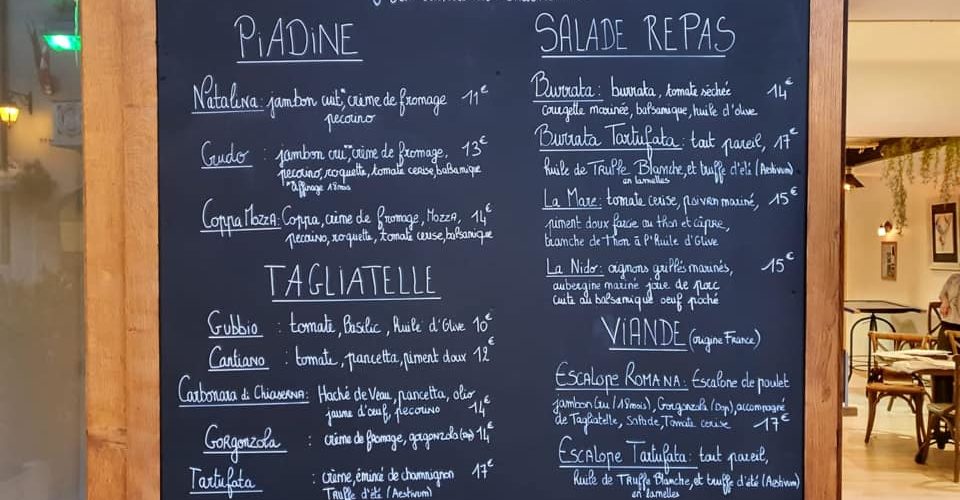 PiADiNE
Natalina : jambon cuit, crème de fromage 11€
pecorino
Crudo : jambon cru*, crème de fromage, 13€
pecorino, roquette, tomate cerise, balsamique
*affinage 18 mois
Coppa Mozza : Coppa, crème de fromage, Mozza, 14€
pecorino, roquette, tomate cerise, balsamique
TAGLIATELLE
Gubbio : tomate, Basilic, Huile d'Olive 10€
Cantiano : tomate, pancetta, piment doux 12€
Carbonara di Chiaserna : Haché de Veau, pancetta, olio
jaune d'oeuf, pecorino 14€
Gorgonzola : crème de fromage, gorgonzola (dop) 14€
Tartufata : crème, émincé de champignon 17€
Truffe d'été (Aestivum)
SALADE REPAS
Burrata : burrata, tomate sèchée 14€
courgette marinée, balsamique, huile d'olive
Burrata Tartufata : tout pareil, 17€
Huile de Truffe Blanche, et truffe d'été (Aestivum)
en lamelles
La Mare : tomate cerise, poivron mariné, 15€
piment doux farcie au thon et câpre,
branche de Thon à l'Huile d'Olive
La Nido : oignons grillés marinés, 15€
aubergine mariné joue de porc
cuite au balsamique oeuf poché
ViANDE (origine France)
Escalope Romana : Escalope de poulet
jambon cru (18mois), Gorgonzola (Dop), accompagné
de Tagliatelle, Salade, Tomate cerise 17€
Escalope Tartufata : tout pareil,
Huile de Truffe Blanche, et truffe d'été (Aestivum)
en lamelles